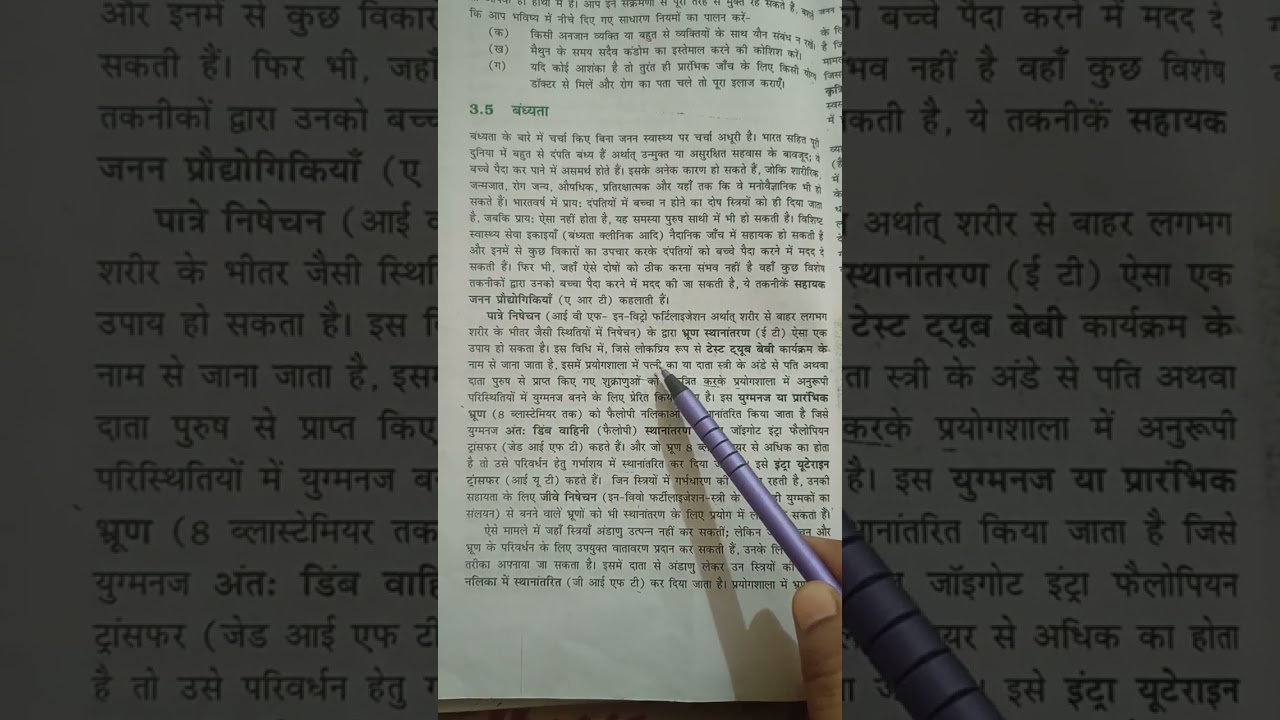 कि आप भविष्य में नीचे दिए गए साधारण नियमों का पालन करें-
(क) किसी अनजान व्यक्ति या बहुत से व्यक्तियों के साथ यौन संबंध न रखें।
(ख) मैथुन के समय सदैव कंडोम का इस्तेमाल करने की कोशिश करें।
(ग) यदि कोई आशंका है तो तुरंत ही प्रारंभिक जाँच के लिए किसी योग्य
डॉक्टर से मिलें और रोग का पता चले तो पूरा इलाज कराएँ।
3.5 बंध्यता
बंध्यता के बारे में चर्चा किए बिना जनन स्वास्थ्य पर चर्चा अधूरी है। भारत सहित पूरी
दुनिया में बहुत से दंपति बंध्य हैं अर्थात् उन्मुक्त या असुरक्षित सहवास के बावजूद; वे
बच्चे पैदा कर पाने में असमर्थ होते हैं। इसके अनेक कारण हो सकते हैं, जोकि शारीरिक,
जन्मजात, रोग जन्य, औषधिक, प्रतिरक्षात्मक और यहाँ तक कि वे मनोवैज्ञानिक भी हो
सकते हैं। भारतवर्ष में प्राय: दंपतियों में बच्चा न होने का दोष स्त्रियों को ही दिया जाता
है, जबकि प्राय: ऐसा नहीं होता है, यह समस्या पुरुष साथी में भी हो सकती है। विशिष्ट
स्वास्थ्य सेवा इकाइयाँ (बंध्यता क्लीनिक आदि) नैदानिक जाँच में सहायक हो सकती हैं
और इनमें से कुछ विकारों का उपचार करके दंपतियों को बच्चे पैदा करने में मदद दे
सकती हैं। फिर भी, जहाँ ऐसे दोषों को ठीक करना संभव नहीं है वहाँ कुछ विशेष
तकनीकों द्वारा उनको बच्चा पैदा करने में मदद की जा सकती है, ये तकनीकें सहायक
जनन प्रौद्योगिकियाँ (ए आर टी) कहलाती हैं।
पात्रे निषेचन (आई वी एफ- इन-विट्रो फर्टिलाइजेशन अर्थात् शरीर से बाहर लगभग
शरीर के भीतर जैसी स्थितियों में निषेचन) के द्वारा भ्रूण स्थानांतरण (ई टी) ऐसा एक
उपाय हो सकता है। इस विधि में, जिसे लोकप्रिय रूप से टेस्ट ट्यूब बेबी कार्यक्रम के
नाम से जाना जाता है, इसमें प्रयोगशाला में पत्नी का या दाता स्त्री के अंडे से पति अथवा
दाता पुरुष से प्राप्त किए गए शुक्राणुओं को करके प्रयोगशाला में अनुरूपी
परिस्थितियों में युग्मनज बनने के लिए प्रेरित है। इस युग्मनज या प्रारंभिक
भ्रूण (8 ब्लास्टेमियर तक) को फैलोपी नलिकाओं किया जाता है जिसे
युग्मनज अंत: डिंब वाहिनी (फैलोपी) स्थानांतरण जॉइगोट इंट्रा फैलोपियन
ट्रांसफर (जेड आई एफ टी) कहते हैं। और जो भ्रूण 8 से अधिक का होता
है तो उसे परिवर्धन हेतु गर्भाशय में स्थानांतरित कर दिया इसे इंट्रा यूटेराइन
ट्रांसफर (आई यू टी) कहते हैं। जिन स्त्रियों में गर्भधारण की रहती है, उनकी
सहायता के लिए जीवे निषेचन (इन-विवो फर्टीलाइजेशन-स्त्री के युग्मकों का
संलयन) से बनने वाले भ्रूणों को भी स्थानांतरण के लिए प्रयोग में सकता है।
ऐसे मामले में जहाँ स्त्रियाँ अंडाणु उत्पन्न नहीं कर सकतीं; लेकिन और
भ्रूण के परिवर्धन के लिए उपयुक्त वातावरण प्रदान कर सकती हैं, उनके
तरीका अपनाया जा सकता है। इसमें दाता से अंडाणु लेकर उन स्त्रियों
नलिका में स्थानांतरित (जी आई एफ टी) कर दिया जाता है। प्रयोगशाला में